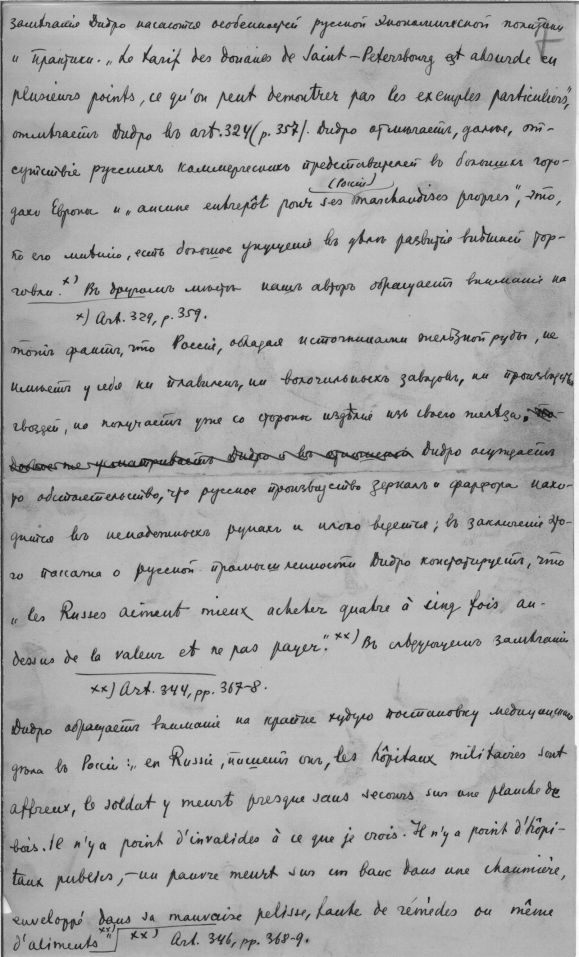 замѣчанiе Дидро касаются особенностей русской экономической политики
и практики. „Le tarif des douanes de Saint-Petersbourg est absurde en
plusieurs points, ce qu'on peut demontrer par les exemples particuliers",
отмѣчаетъ Дидро въ art. 324 (p. 357). Дидро отмѣчаетъ, далѣе, от-
сутствiе русскихъ коммерческихъ представителей въ большихъ горо-
(Россiи)
дахъ Европы и „aucune entrepôt pour ses marchandises propres", это,
по его мнѣнiю, есть большое упущенiе въ дѣлѣ развитiя внѣшней тор-
говли. x) Въ другомъ мѣстѣ нашъ авторъ обращаетъ вниманiе на
x) Art. 329, p. 359.
тотъ фактъ, что Россiя, обладая источниками желѣзной руды, не
имѣетъ у себя ни плавиленъ, ни волочильныхъ заводовъ, ни производства
гвоздей, но получаетъ уже со стороны издѣлiе изъ своего желѣза.
Дидро осуждаетъ
то обстоятельство, что русское производство зеркалъ и фарфора нахо-
дится въ ненадежныхъ рукахъ и плохо ведется; въ заключенiе это-
го пассажа о русской промышленности Дидро констатируетъ, что
„les Russes aiment mieux acheter quatre à cinq fois au-
dessus de la valeur et ne pas payer". xx) Въ слѣдующемъ замѣчанiи
xx) Art. 344, pp. 367-8.
Дидро обращаетъ вниманiе на крайне худую постановку медицинскаго
дѣла въ Россiи: „en Russie, пишетъ онъ, les hôpitaux militaires sont
affreux, le soldat y meurt presque sans secours sur une planche de
bois. Il n'y a point d'invalides à ce que je crois. Il n'y a point d'hôpi-
taux publics, – un pauvre meurt sur un banc dans une chaumière,
enveloppé dans sa mauvaise pelisse, faute de rémèdes ou même
d'aliments" xx) xx) Art. 346, pp. 368-9.